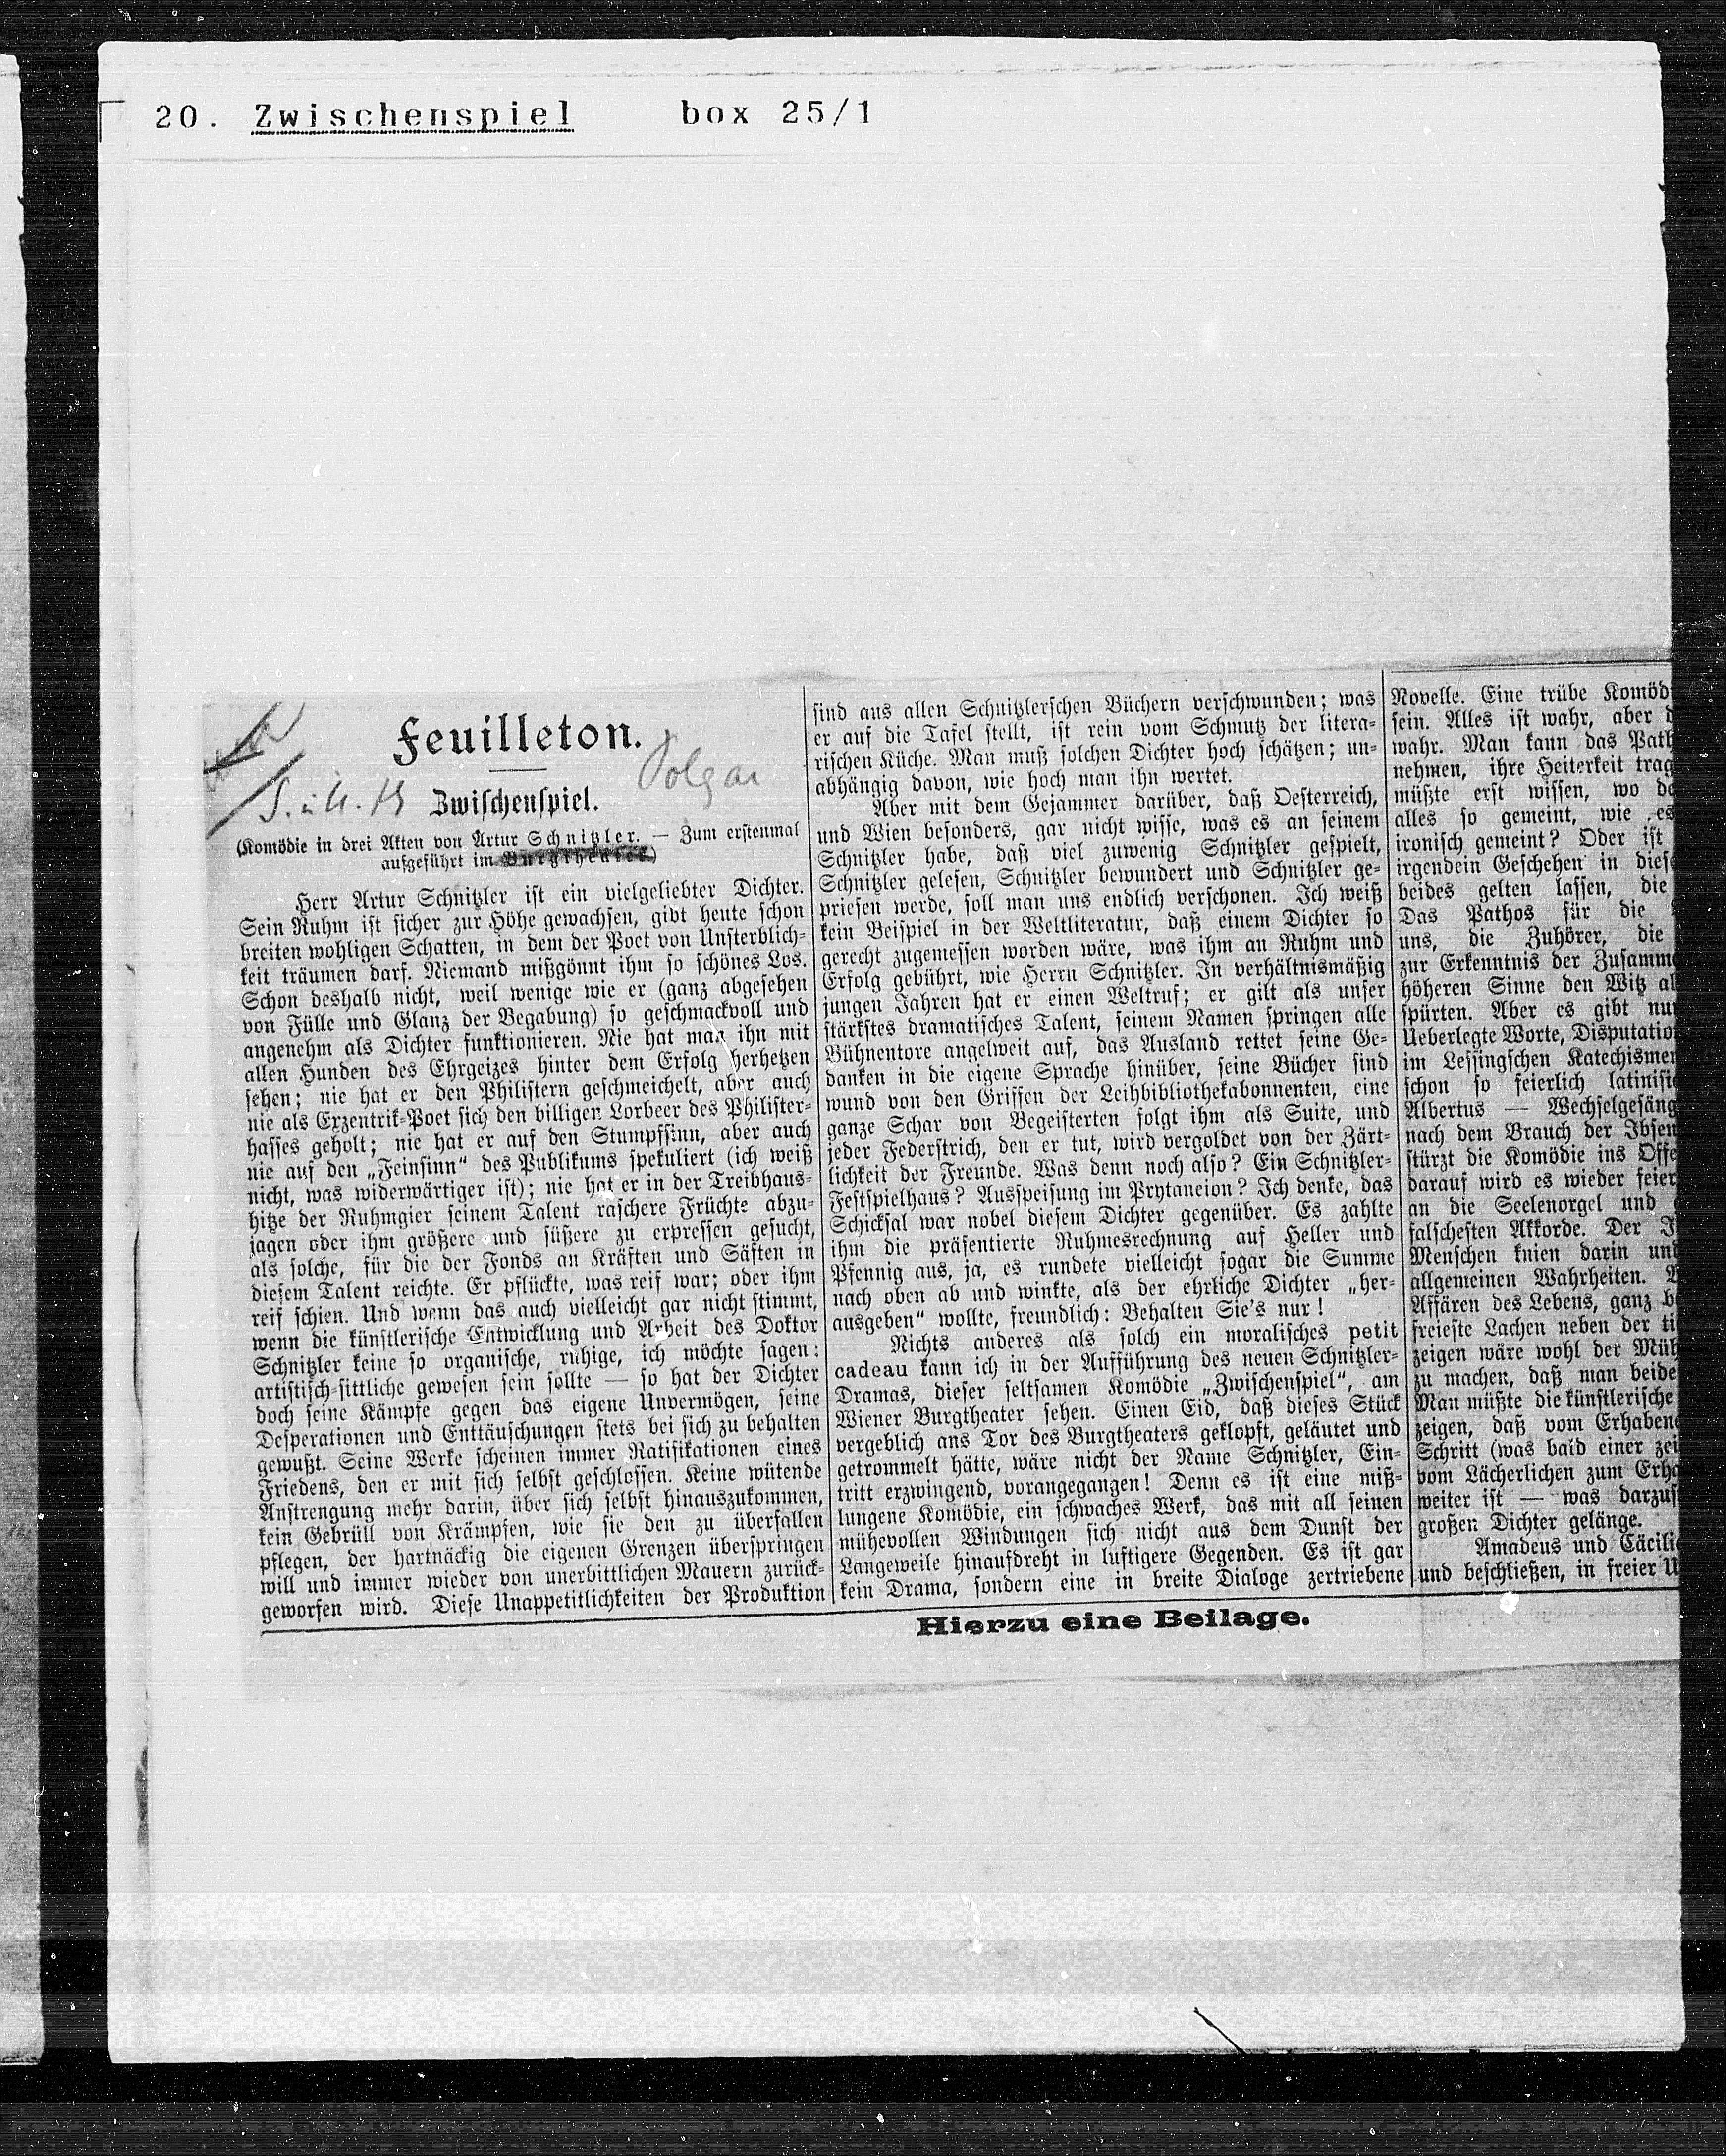 20. Zwischenspiel box 25/1
Feuilleton.
Polgar
S. u. M. Z
Zwischenspiel.
(Komödie in drei Akten von Artur Schnitzler. — Zum erstenmal
aufgeführt im Burgtheater.)
Herr Artur Schnitzler ist ein vielgeliebter Dichter.
Sein Ruhm ist sicher zur Höhe gewachsen, gibt heute schon
breiten wohligen Schatten, in dem der Poet von Unsterblich-
keit träumen darf. Niemand mißgönnt ihm so schönes Los.
Schon deshalb nicht, weil wenige wie er (ganz abgesehen
von Fülle und Glanz der Begabung) so geschmackvoll und
angenehm als Dichter funktionieren. Nie hat man ihn mit
allen Hunden des Ehrgeizes hinter dem Erfolg herhetzen
sehen; nie hat er den Philistern geschmeichelt, aber auch
nie als Exzentrik-Poet sich den billigen Lorbeer des Philister-
hasses geholt; nie hat er auf den Stumpfsinn, aber auch
nie auf den „Feinsinn“ des Publikums spekuliert (ich weiß
nicht, was widerwärtiger ist); nie hat er in der Treibhaus-
hitze der Ruhmgier seinem Talent raschere Früchte abzu-
jagen oder ihm größere und süßere zu erpressen gesucht,
als solche, für die der Fonds an Kräften und Säften in
diesem Talent reichte. Er pflückte, was reif war; oder ihm
reif schien. Und wenn das auch vielleicht gar nicht stimmt,
wenn die künstlerische Entwicklung und Arbeit des Doktor
Schnitzler keine so organische, ruhige, ich möchte sagen:
artistisch-sittliche gewesen sein sollte — so hat der Dichter
doch seine Kämpfe gegen das eigene Unvermögen, seine
Desperationen und Enttäuschungen stets bei sich zu behalten
gewußt. Seine Werke scheinen immer Ratifikationen eines
Friedens, den er mit sich selbst geschlossen. Keine wütende
Anstrengung mehr darin, über sich selbst hinauszukommen,
kein Gebrüll von Krämpfen, wie sie den zu überfallen
pflegen, der hartnäckig die eigenen Grenzen überspringen
will und immer wieder von unerbittlichen Mauern zurück-
geworfen wird. Diese Unappetitlichkeiten der Produktion
sind aus allen Schnitzlerschen Büchern verschwunden; was
er auf die Tafel stellt, ist rein vom Schmutz der litera-
rischen Küche. Man muß solchen Dichter hoch schätzen; un-
abhängig davon, wie hoch man ihn wertet.
Aber mit dem Gejammer darüber, daß Oesterreich,
und Wien besonders, gar nicht wisse, was es an seinem
Schnitzler habe, daß viel zuwenig Schnitzler gespielt,
Schnitzler gelesen, Schnitzler bewundert und Schnitzler ge-
priesen werde, soll man uns endlich verschonen. Ich weiß
kein Beispiel in der Weltliteratur, daß einem Dichter so
gerecht zugemessen worden wäre, was ihm an Ruhm und
Erfolg gebührt, wie Herrn Schnitzler. In verhältnismäßig
jungen Jahren hat er einen Weltruf; er gilt als unser
stärkstes dramatisches Talent, seinem Namen springen alle
Bühnentore angelweit auf, das Ausland rettet seine Ge-
danken in die eigene Sprache hinüber, seine Bücher sind
wund von den Griffen der Leihbibliothekabonnenten, eine
ganze Schar von Begeisterten folgt ihm als Suite, und
jeder Federstrich, den er tut, wird vergoldet von der Zärt-
lichkeit der Freunde. Was denn noch also? Ein Schnitzler-
Festspielhaus? Ausspeisung im Prytaneion? Ich denke, das
Schicksal war nobel diesem Dichter gegenüber. Es zahlte
ihm die präsentierte Ruhmesrechnung auf Heller und
Pfennig aus, ja, es rundete vielleicht sogar die Summe
nach oben ab und winkte, als der ehrliche Dichter „her-
ausgeben“ wollte, freundlich: Behalten Sie's nur!
Nichts anderes als solch ein moralisches petit
cadeau kann ich in der Aufführung des neuen Schnitzler-
Dramas, dieser seltsamen Komödie „Zwischenspiel“, am
Wiener Burgtheater sehen. Einen Eid, daß dieses Stück
vergeblich ans Tor des Burgtheaters geklopft, geläutet und
getrommelt hätte, wäre nicht der Name Schnitzler, Ein-
tritt erzwingend, vorangegangen! Denn es ist eine miß-
lungene Komödie, ein schwaches Werk, das mit all seinen
mühevollen Windungen sich nicht aus dem Dunst der
Langeweile hinaufdreht in luftigere Gegenden. Es ist gar
kein Drama, sondern eine in breite Dialoge zertriebene
Novelle. Eine trübe Komöd
sein. Alles ist wahr, aber d
wahr. Man kann das Path
nehmen, ihre Heiterkeit trag
müßte erst wissen, wo de
alles so gemeint, wie es
ironisch gemeint? Oder ist
irgendein Geschehen in diese
beides gelten lassen, die
Das Pathos für die
uns, die Zuhörer, die
zur Erkenntnis der Zusamme
höheren Sinne den Witz al
spürten. Aber es gibt nur
Ueberlegte Worte, Disputatio
im Lessingschen Katechismen
schon so feierlich latinisi
Albertus — Wechselgesäng
nach dem Brauch der Ibsen
stürzt die Komödie ins Offe
darauf wird es wieder feier
an die Seelenorgel und
falschesten Akkorde. Der J
Menschen knien darin und
allgemeinen Wahrheiten.
Affären des Lebens, ganz b
freieste Lachen neben der ti
zeigen wäre wohl der Müh
zu machen, daß man beide
Man müßte die künstlerische
zeigen, daß vom Erhabene
Schritt (was bald einer zei
vom Lächerlichen zum Erha
weiter ist — was darzus
großen Dichter gelänge.
Amadeus und Cäcili
und beschließen, in freier U
Hierzu eine Beilage.